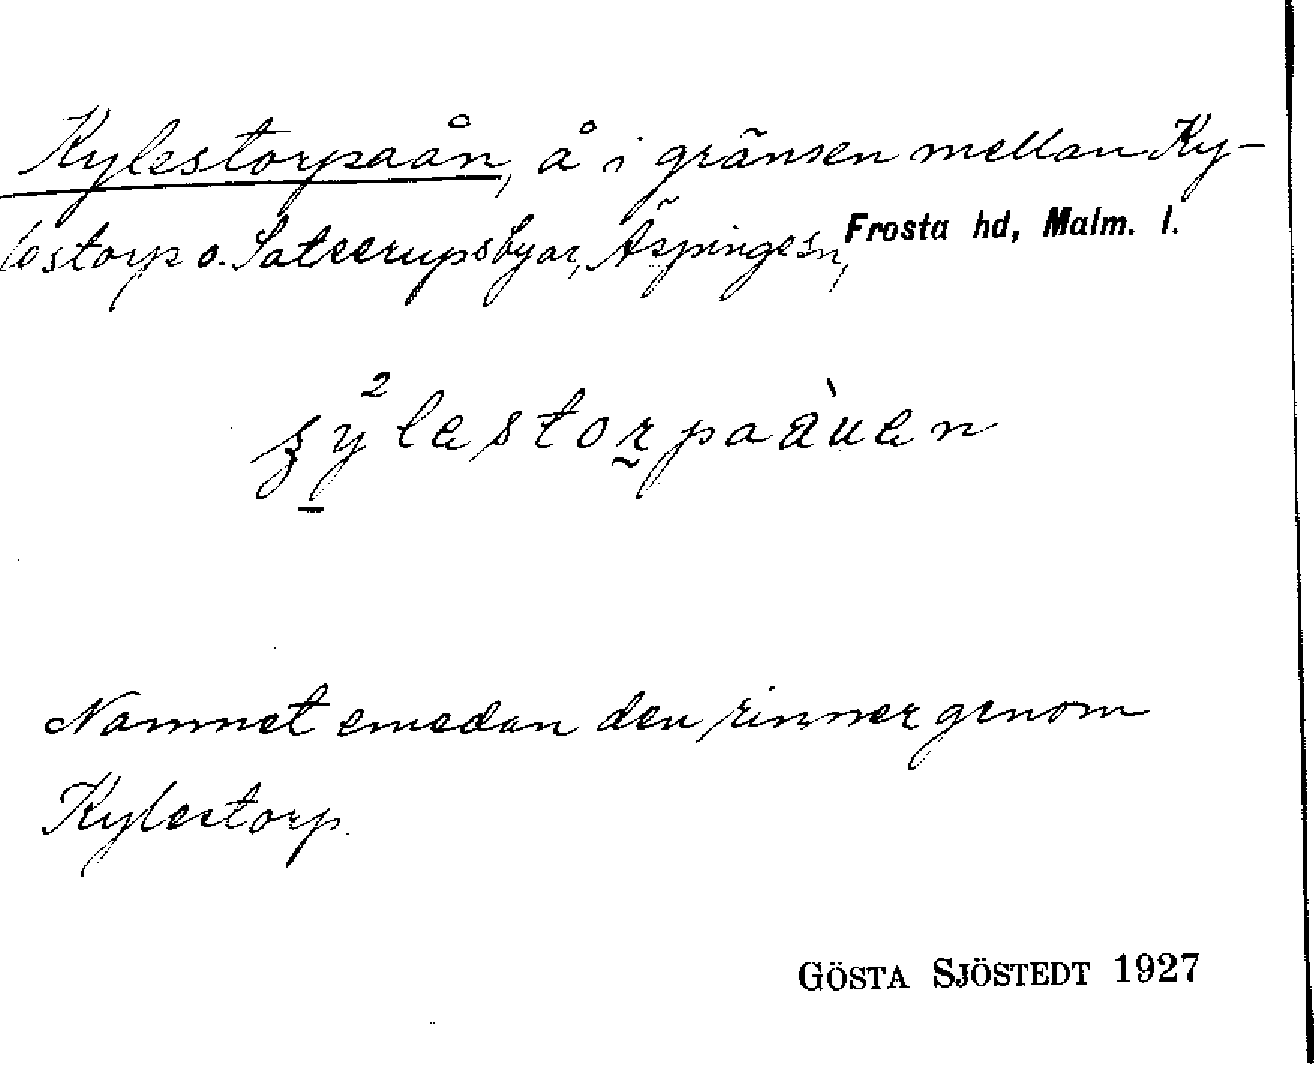 Kylestorpaån, å i gränsen mellan Ky-
lestorp o. Satserups byar, Äspinge sn, Frosta hd, Malm. l.
Namnet emedan den rinner genom
Kylestorp.
GÖSTA SJÖSTEDT 1927